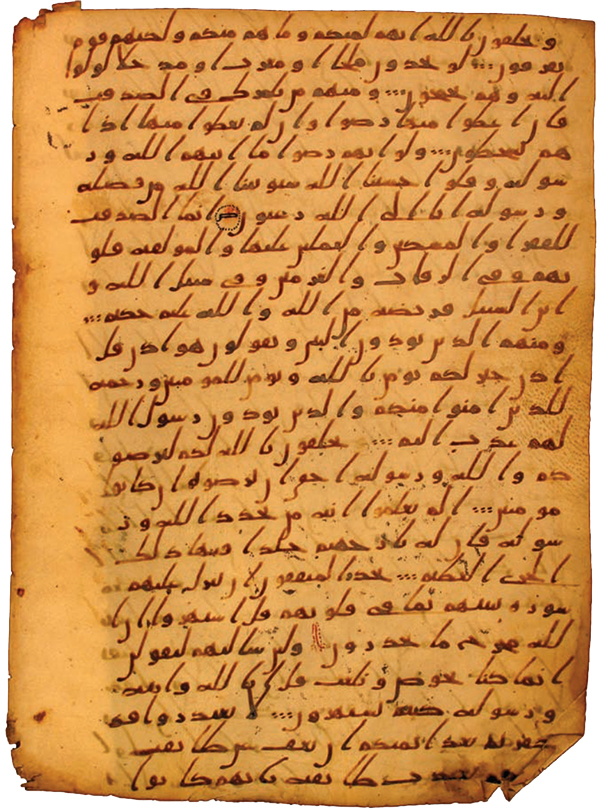 و يحلفون بالله انهم لمنكم و ما هم منكم و لكنهم قوم
يفرقون ؞ لو يجدون ملجا او مغرت او مدخلا لولوا
اليه و هم يجمحون ؞ و منهم من يلمزك في الصدقت
فان اعطوا منها رضوا و ان لم يعطوا منها اذا
هم يسخطون ؞ و لو انهم رضوا ما اتيهم الله و ر
سوله و قلوا حسبنا الله سيوتينا الله من فضله
و رسوله انا الى الله رغبون انما الصدقت
للفقرا و المسكين و العملين عليها و المولفة قلو
بهم و في الرقاب و الغرمين و في سبيل الله و
ابن السبيل فريضة من الله و الله عليم حكيم ؞
و منهم الذين يوذون النبي و يقولون هو اذن قل
اذن خير لكم يومن بالله و يومن للمومنين و رحمة
للذين امنوا منكم و الذين يوذون رسول الله
لهم عذب اليم ؞ يحلفون بالله لكم ليرضو
كم و الله و رسوله احق ان يرضوه ان كانوا
مومنين ؞ الم يعلموا انه من يحدد الله و ر
سوله فان له نار جهنم خلدا فيها ذلك
الخزي العظيم ؞ يحذر المنفقون ان تنزل عليهم
سورة تنبيهم بما في قلوبهم قل استهزوا ان ا
لله مخرج ما تحذرون ولين سالتهم ليقولن
انما كنا نخوض و نلعب قل ابالله و ايته
و رسوله كنتم تستهزون ؞ لا تعتذروا قد
كفرتم بعد ايمنكم ان نعف عن طايفة
نعذب طايفة بانهم كانوا